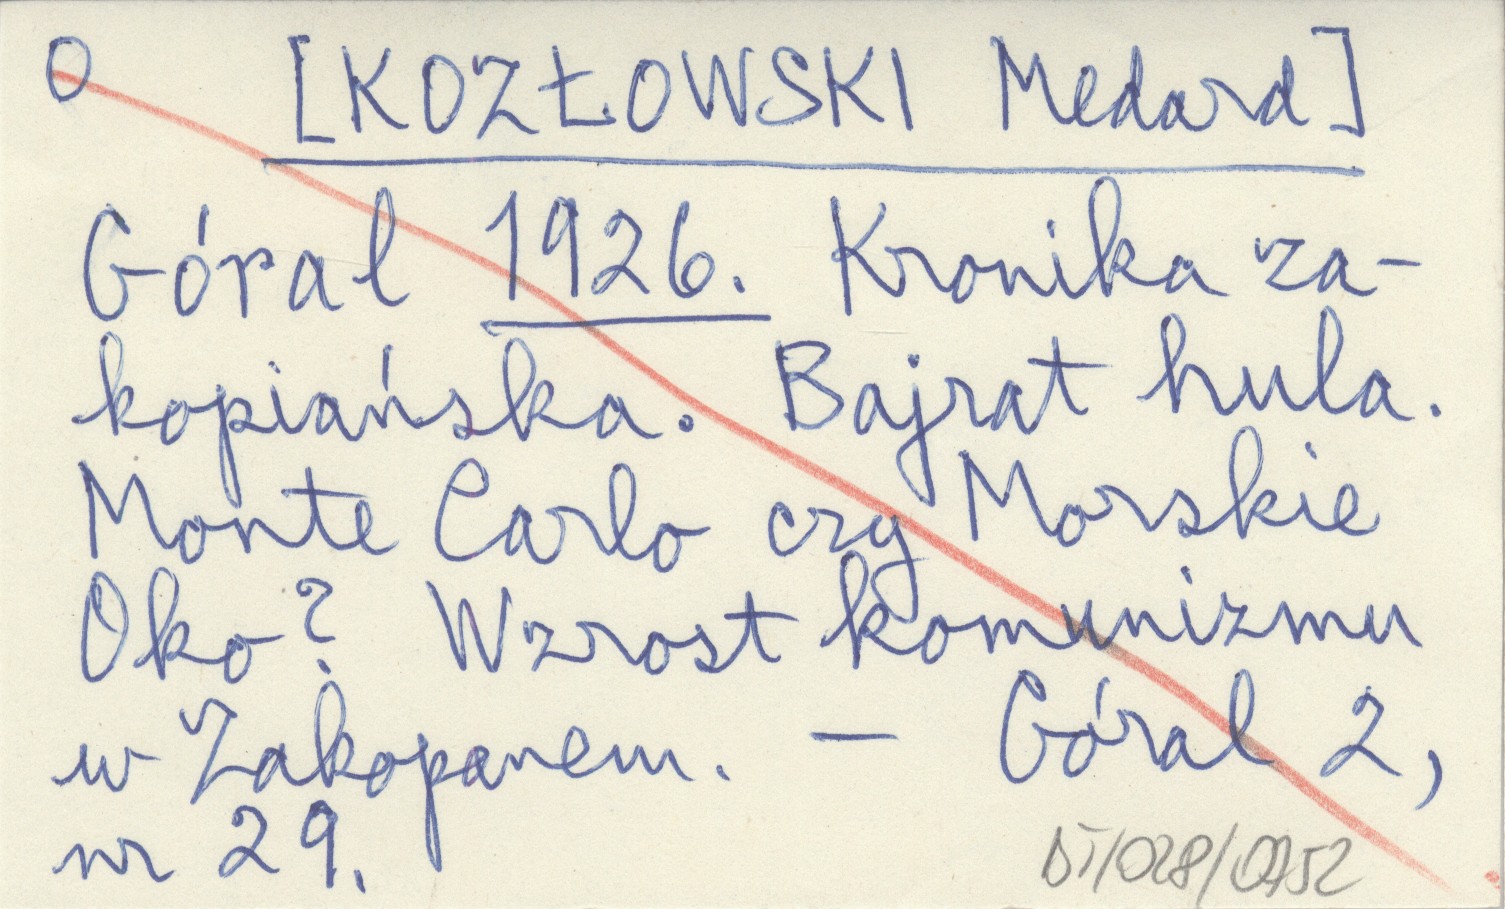 O [KOZŁOWSKI Medard]
Góral 1926. Kronika za-
kopiańska. Bajrat hula.
Monte Carlo czy Morskie
Oko? Wzrost komunizmu
w Zakopanem. — Góral 2,
nr 29.
DT/028/0752